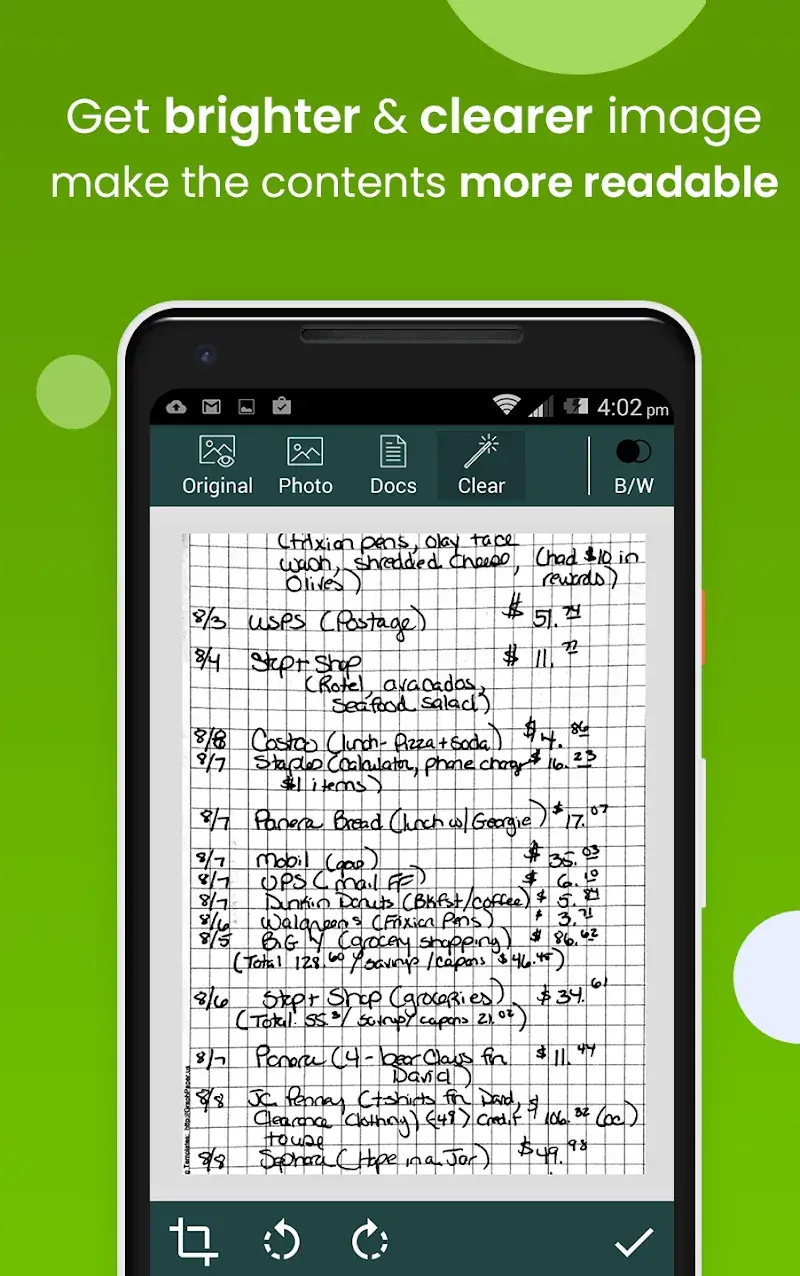 Get brighter & clearer image
make the contents more readable
4:02 pm
Original Photo Docs Clear B/W
(Frixion pens, olay face
wash, shredded cheese, (had $10 in
Olives) rewards)
8/3 USPS (Postage) $ 51.74
8/4 Stop + Shop $ 11.77
(Rotel, avacados,
Seafood Salad)
8/8 Costco (lunch - Pizza + Soda) $ 4.86
8/7 Staples (calculator, phone charge $ 16.23
$1 items)
8/7 Panera Bread (lunch w/ Georgie) $ 17.07
8/7 Mobil (gas) $ 35.03
8/7 UPS (mail FF) $ 6.10
8/7 Dunkin Donuts (Bkfst/coffee) $ 5.84
8/6 Walgreens (Frixion Pens) $ 3.71
8/5 BIG Y (grocery shopping) $ 86.62
(Total 128.60 / savings / coupons $46.45)
8/6 Stop + Shop (groceries) $ 34.61
(Total 55. / savings / coupons 21.02)
8/7 Panera (4 - bear Claws for $ 11.44
David)
8/8 JC Penney (t-shirts for David, $
Clearance Clothing) (-49) credit 106.32 (cc)
to use
8/8 Sephora (Hope in a Jar) $49.98
Templates http://GraphPaper.us